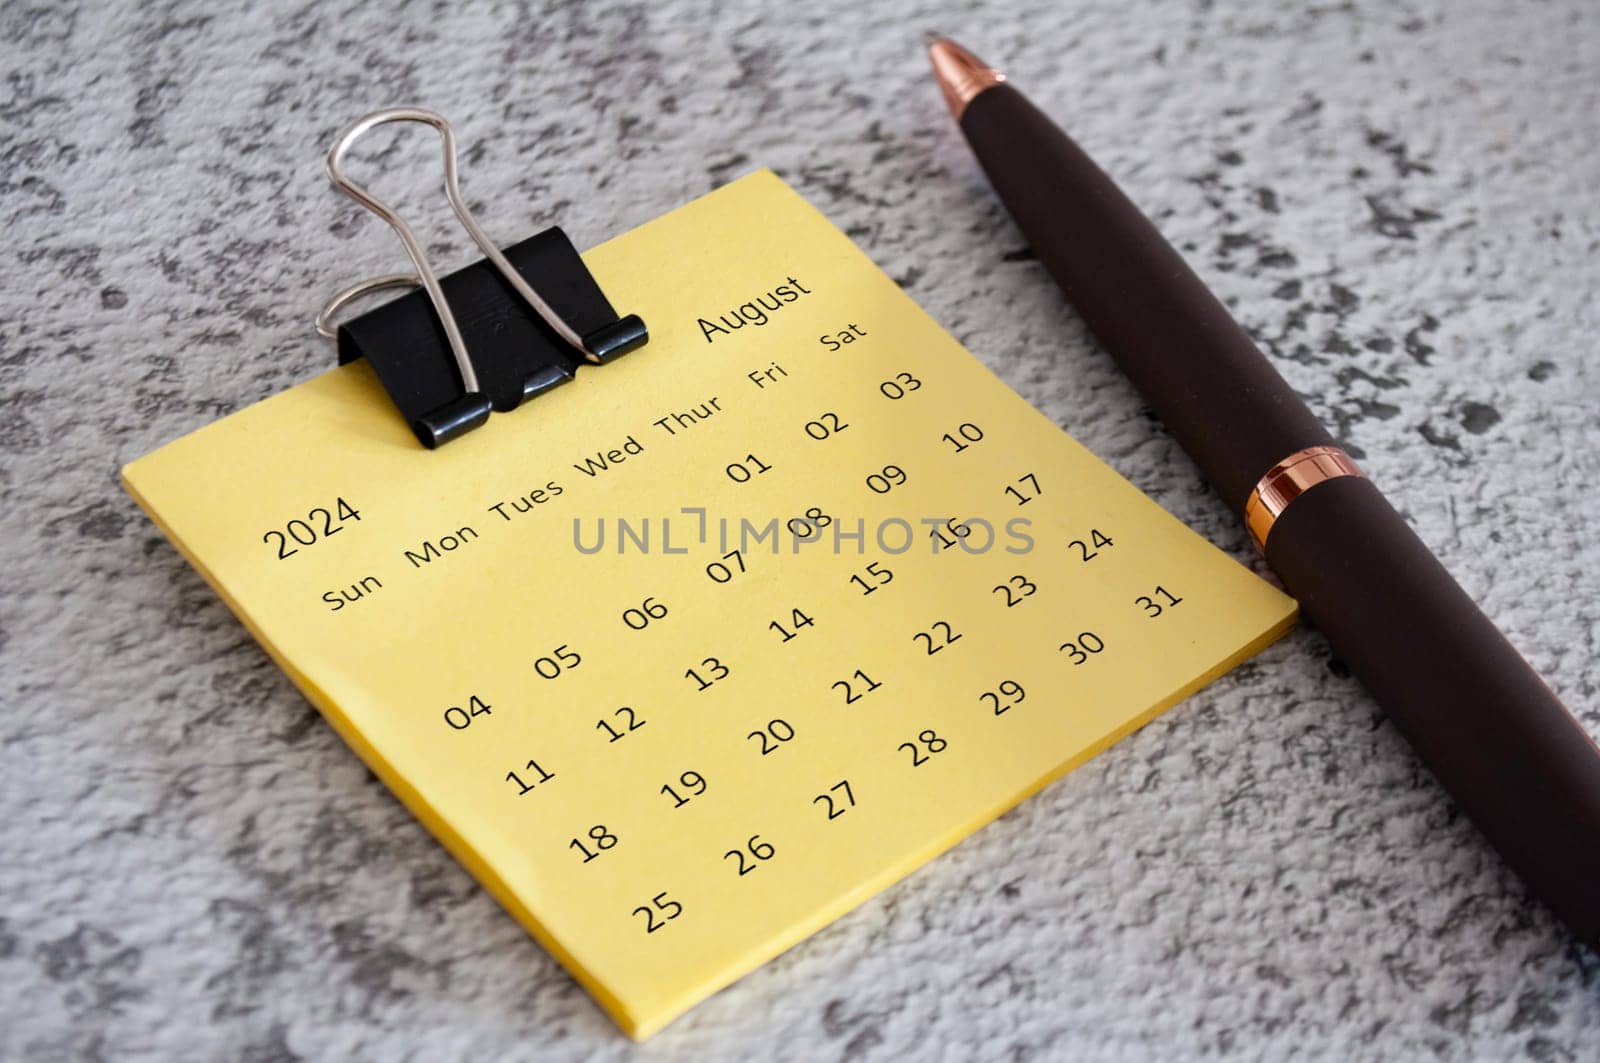 2024 August
Sun Mon Tues Wed Thur Fri Sat
01 02 03
04 05 06 07 08 09 10
11 12 13 14 15 16 17
18 19 20 21 22 23 24
25 26 27 28 29 30 31
UNLIMPHOTOS